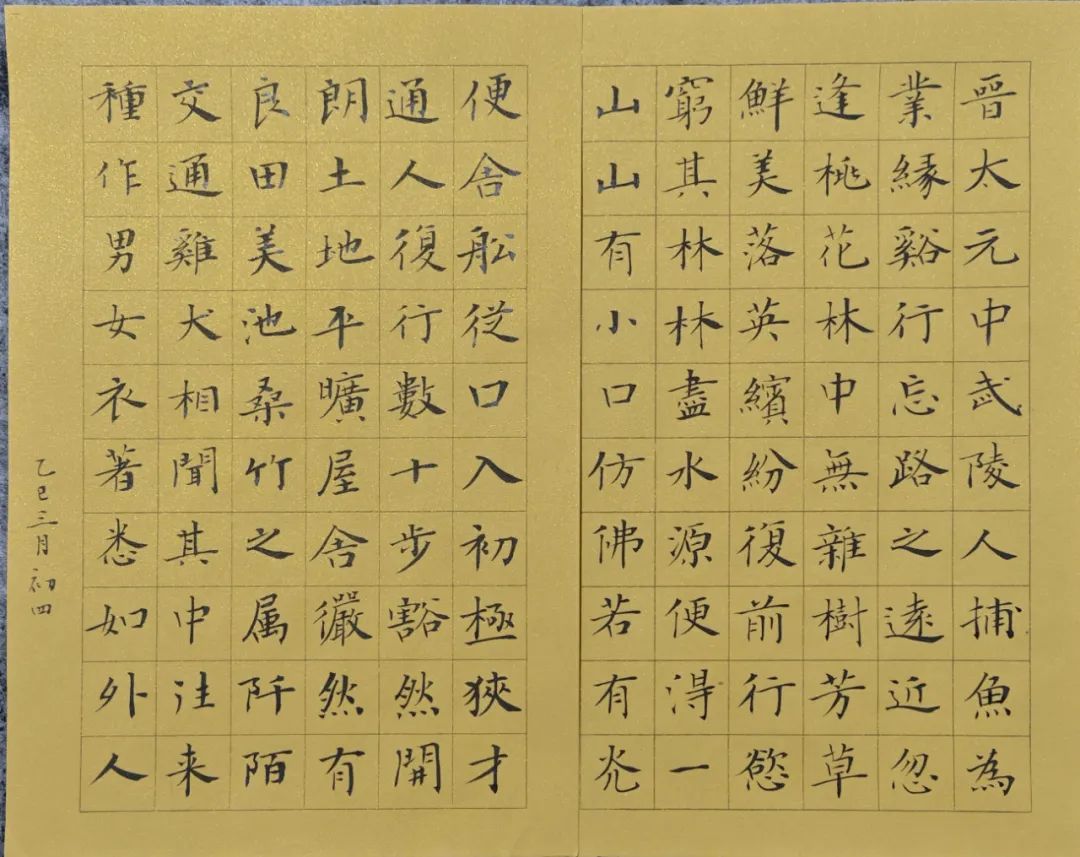 晉太元中武陵人捕魚為
業緣谿行忘路之遠近忽
逢桃花林中無雜樹芳草
鮮美落英繽紛復前行慾
窮其林林盡水源便淂一
山山有小口仿佛若有灮
便舍舩從口入初極狹才
通人復行數十步豁然開
朗土地平曠屋舍儼然有
良田美池桑竹之属阡陌
交通雞犬相聞其中往来
種作男女衣著悉如外人
乙巳三月初四